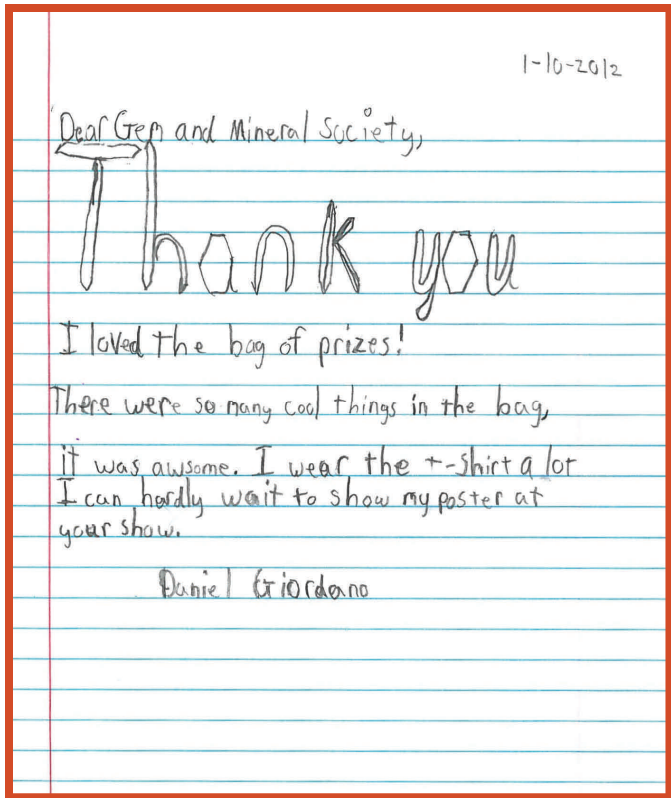 1-10-2012
Dear Gem and Mineral Society,
Thank you
I loved the bag of prizes!
There were so many cool things in the bag,
it was awsome. I wear the t-shirt a lot
I can hardly wait to show my poster at
your show.
Daniel Giordano